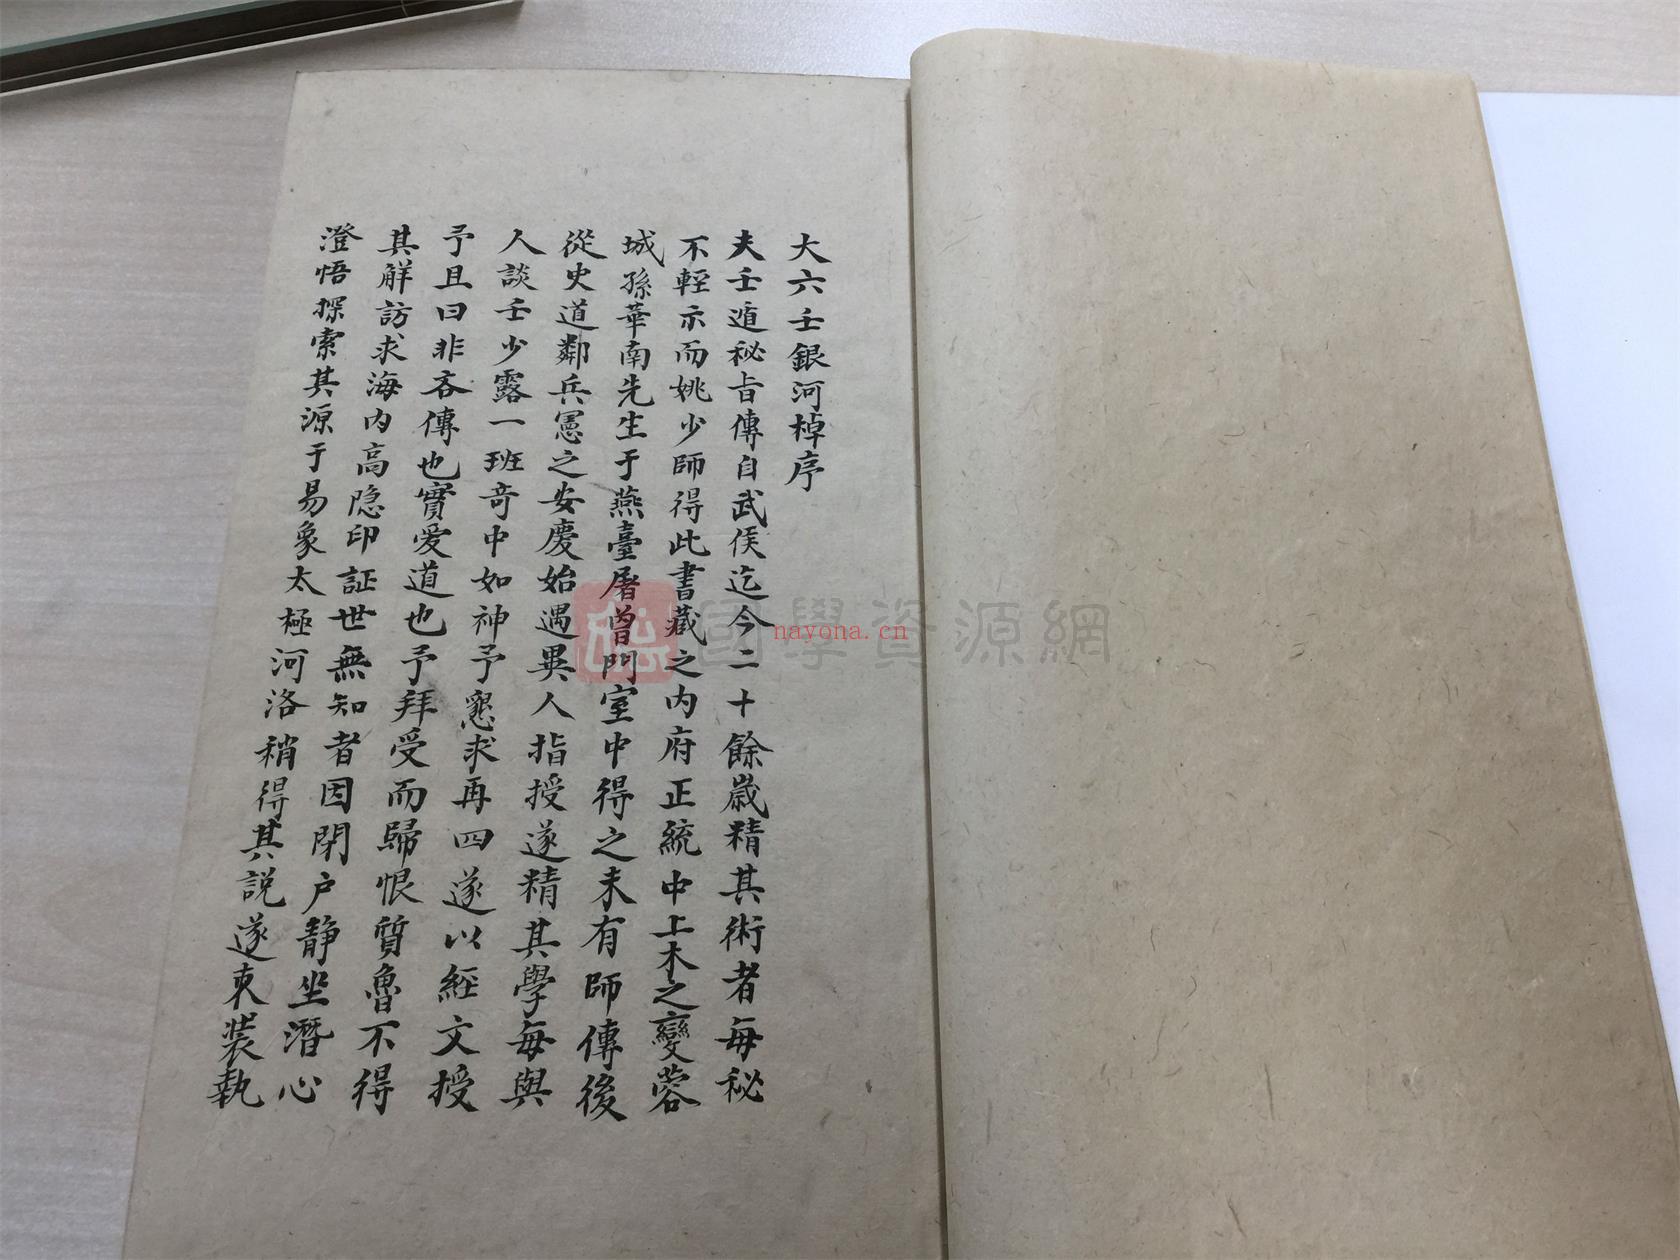 大六壬銀河棹序
夫壬遁秘旨傳自武侯迄今二十餘歲精其術者每秘
不輕示而姚少師得此書藏之内府正統中上木之變蓉
城孫華南先生于燕臺屠曾門室中得之未有師傳後
從史道鄰兵憲之安慶始遇異人指授遂精其學每與
人談壬少露一班竒中如神予懇求再四遂以經文授
予且曰非吝傳也實愛道也予拜受而歸恨質魯不得
其解訪求海内高隐印証世無知者因閉户靜坐潛心
澄悟探索其源于易象太極河洛稍得其説遂束装執
國學資源網
nayona.cn